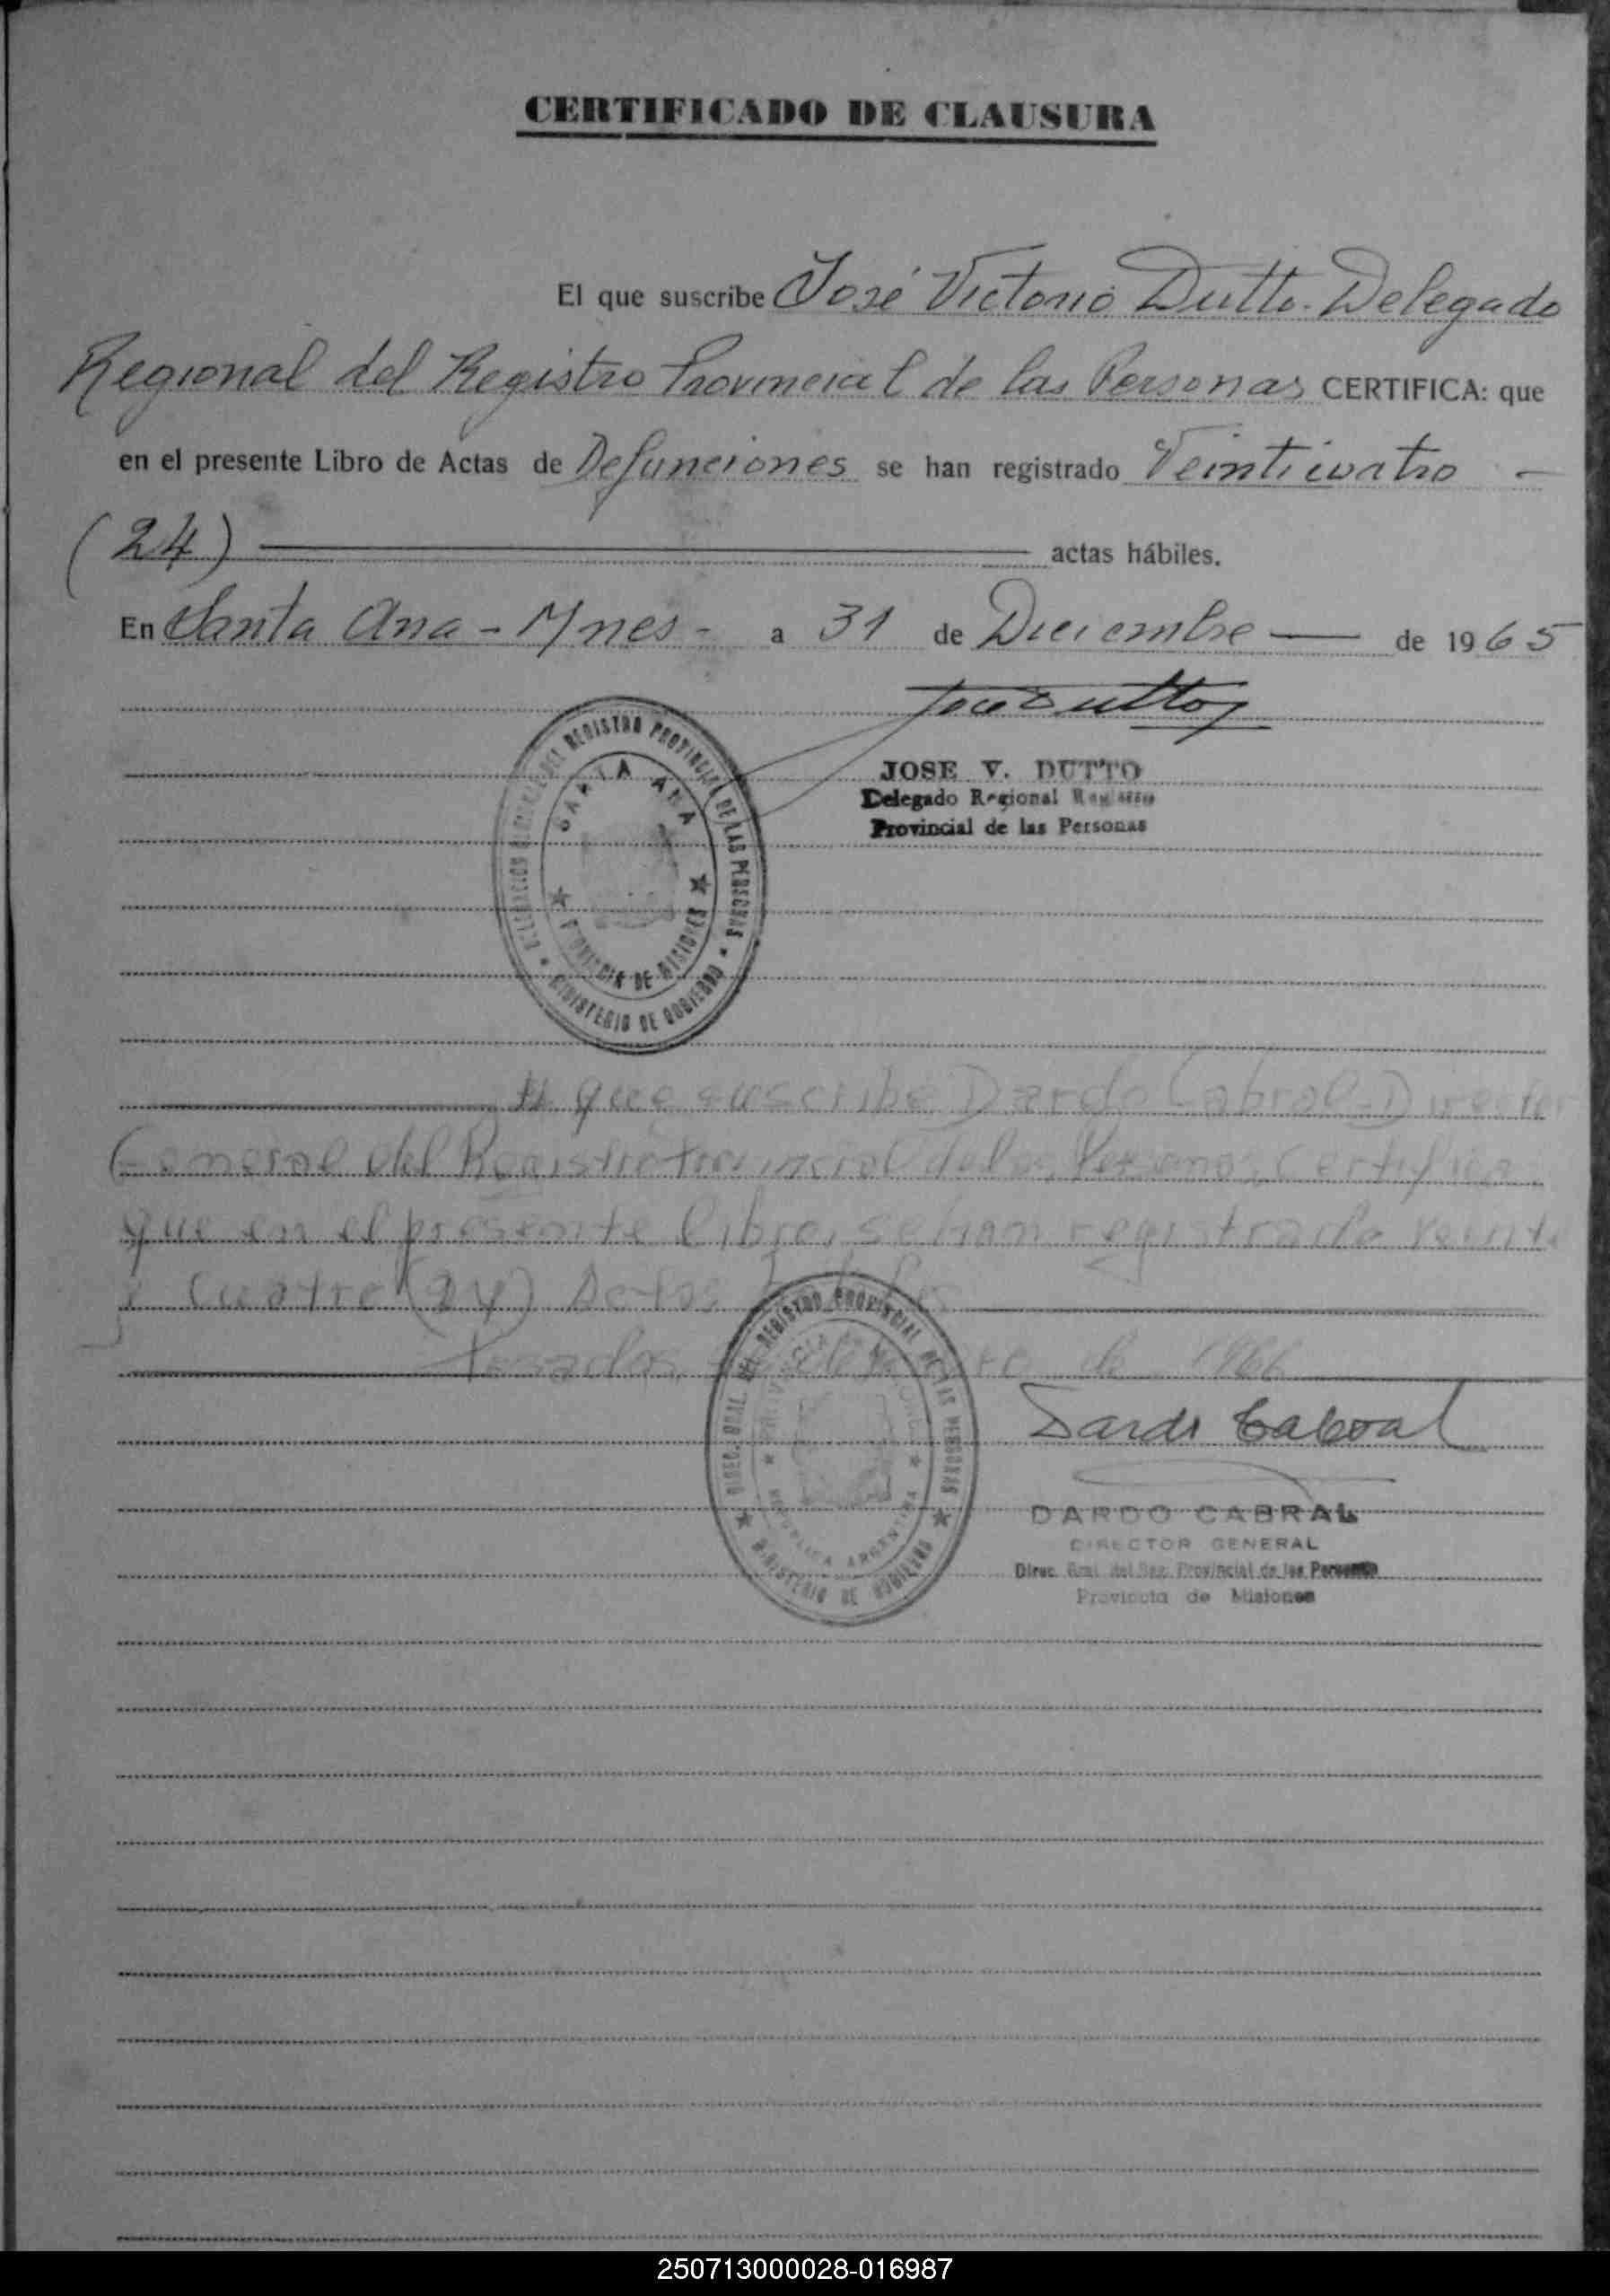 CERTIFICADO DE CLAUSURA
El que suscribe José Victorio Dutto. Delegado
Regional del Registro Provincial de las Personas CERTIFICA: que
en el presente Libro de Actas de Defunciones se han registrado Veinticuatro -
(24) actas hábiles.
En Santa Ana - Mnes - a 31 de Diciembre — de 1965
Jose Dutto
JOSE V. DUTTO
Delegado Regional Registro
Provincial de las Personas
DEL REGISTRO PROVINCIAL DE LAS PERSONAS
SANTA ANA
PROVINCIA DE MISIONES
MINISTERIO DE GOBIERNO
El que suscribe Dardo Cabral - Director
General del Registro Provincial de las Personas, Certifica
que en el presente libro, se han registrado veinti
cuatro (24) Actas
Posadas, de de 1966
Dardo Cabral
DARDO CABRAL
DIRECTOR GENERAL
Direc. Gral. del Reg. Provincial de las Personas
Provincia de Misiones
DIREC. GRAL. DEL REGISTRO PROVINCIAL DE LAS PERSONAS
PROVINCIA DE MISIONES
REPUBLICA ARGENTINA
MINISTERIO DE GOBIERNO
250713000028-016987